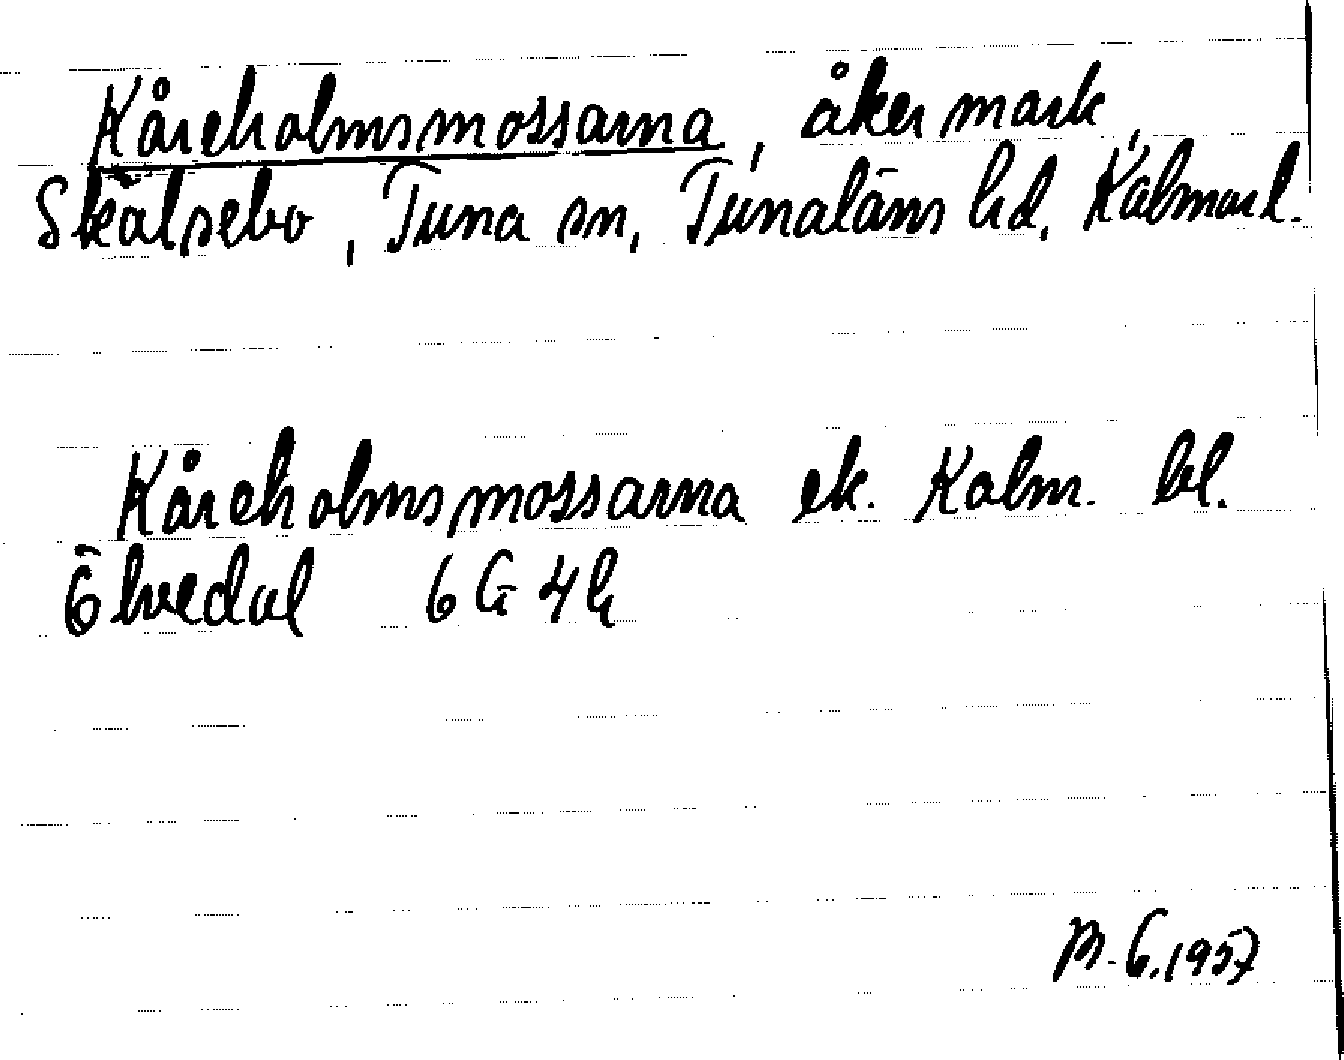 Kåreholmsmossarna, åkermark,
Skälsebo, Tuna sn, Tunaläns hd, Kalmar l.
Kåreholmsmossarna ek. Kalm. bl.
Ölvedal 6G 4h
M. G. 1957